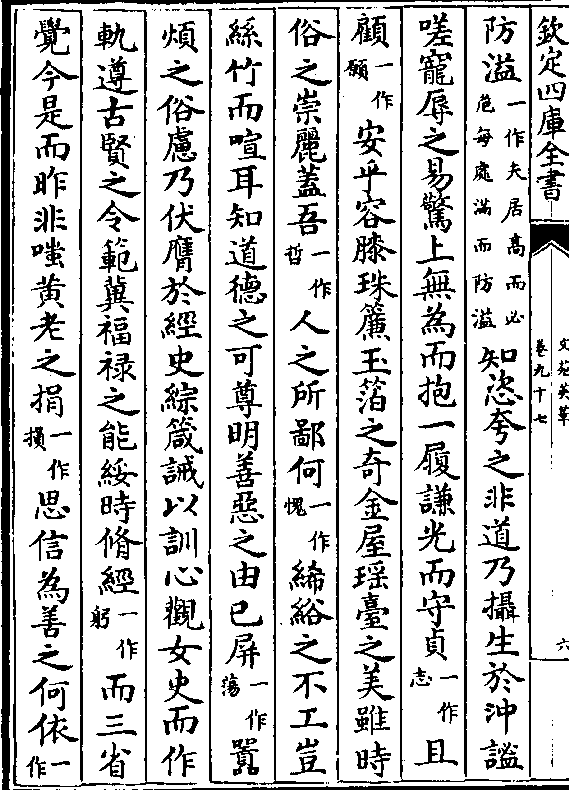 欽定四庫全書
文苑英華
卷九十七
六
防溢一作夫居高而必危每處滿而防溢知恣夸之非道乃攝生於沖謐
嗟寵辱之易驚上無為而抱一履謙光而守貞一作志且
顧一作願安乎容膝珠簾玉箔之奇金屋瑶臺之美雖時
俗之崇麗蓋吾一作哲人之所鄙何一作愧絺綌之不工豈
絲竹而喧耳知道德之可尊明善惡之由已屏一作蕩囂
煩之俗慮乃伏膺於經史綜箴誡以訓心觀女史而作
軌遵古賢之令範冀福禄之能綏時脩經一作躬而三省
覺今是而昨非嗤黄老之捐一作損思信為善之何依一作